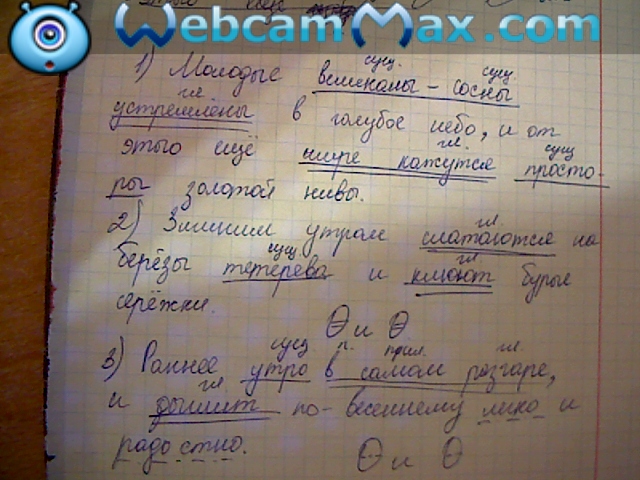 WebcamMax.com
сущ. сущ.
1) Молодые великаны – сосны
гл
устремлёны в голубое небо, и от
гл. сущ
этого ещё шире кажутся просто-
ры золотой нивы.
гл
2) Зимним утром слетаются на
сущ гл
берёзы тетерева и клюют бурые
серёжки.
О и О
сущ п. прил. гл.
3) Раннее утро в самом разгаре,
гл
и дышит по-весеннему легко и
радостно.
О и О